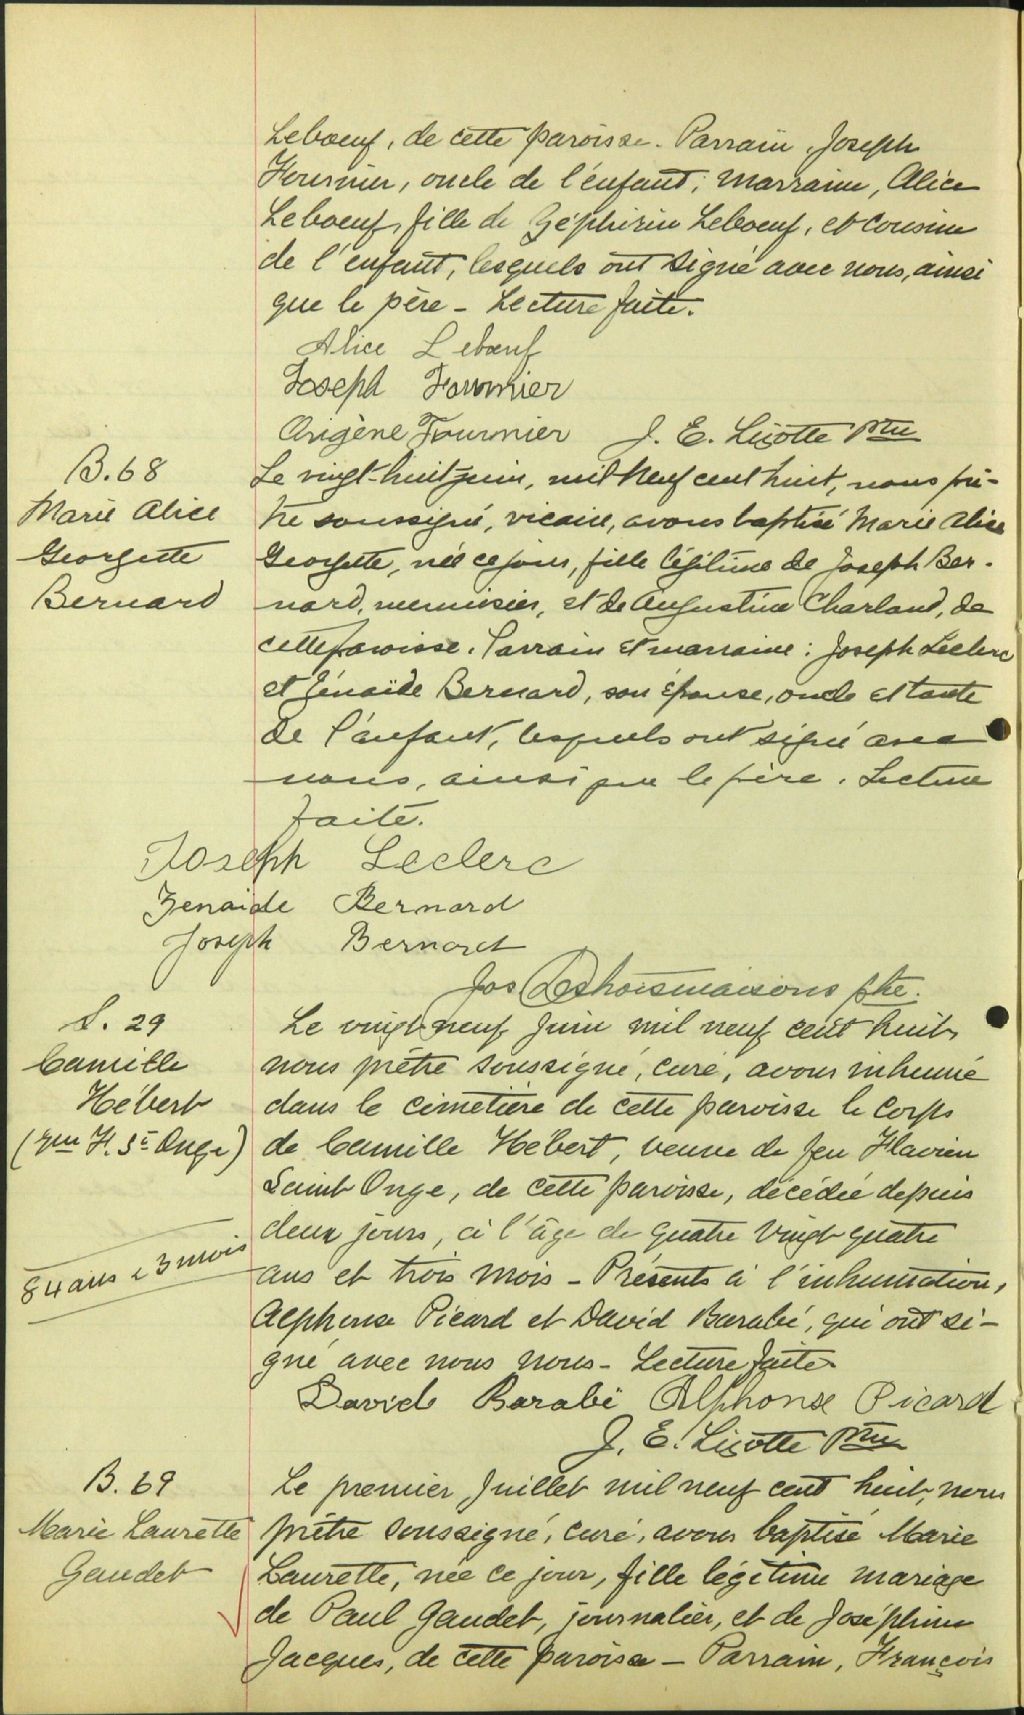 Leboeuf, de cette paroisse. Parrain, Joseph
Fournier, oncle de l'enfant; marraine, Alice
Leboeuf, fille de Zéphirin Leboeuf, et cousine
de l'enfant, lesquels ont signé avec nous, ainsi
que le père - Lecture faite.
Alice Leboeuf
Joseph Fournier
Origène Fournier J. E. Lizotte Ptre
B. 68
Marie Alice
Georgette
Bernard
Le vingt-huit juin, mil neuf cent huit, nous prê-
tre soussigné, vicaire, avons baptisé Marie Alice
Georgette, née ce jour, fille légitime de Joseph Ber-
nard, menuisier, et de Augustine Charland, de
cette paroisse. Parrain et marraine: Joseph Leclerc
et Zénaïde Bernard, son épouse, oncle et tante
de l'enfant, lesquels ont signé avec
nous, ainsi que le père. Lecture
faite.
Joseph Leclerc
Zenaide Bernard
Joseph Bernard
Jos Deshoismaisons ptre.
S. 29
Camille
Hébert
(Vve F. St Onge)
84 ans & 3 mois
Le vingt neuf Juin mil neuf cent huit
nous prêtre soussigné, curé, avons inhumé
dans le cimetière de cette paroisse le corps
de Camille Hébert, veuve de feu Flavien
Saint Onge, de cette paroisse, décédée depuis
deux jours, à l'âge de quatre vingt quatre
ans et trois mois - Présents à l'inhumation,
Alphonse Picard et David Barabé, qui ont si-
gné avec nous nous - Lecture faite
David Barabé Alphonse Picard
J. E. Lizotte Ptre
B. 69
Marie Laurette
Gaudet
Le premier Juillet mil neuf cent huit, nous
prêtre soussigné, curé, avons baptisé Marie
Laurette, née ce jour, fille légitime mariage
de Paul Gaudet, journalier, et de Joséphine
Jacques, de cette paroisse - Parrain, François